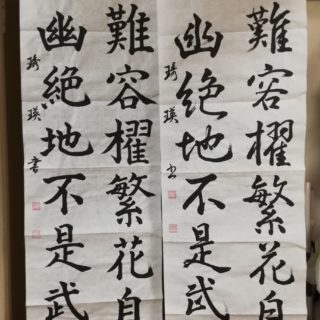 難容櫂繁花自
幽絶地不是武
琦瑛書
難容櫂繁花自
幽绝地不是武
琦瑛书